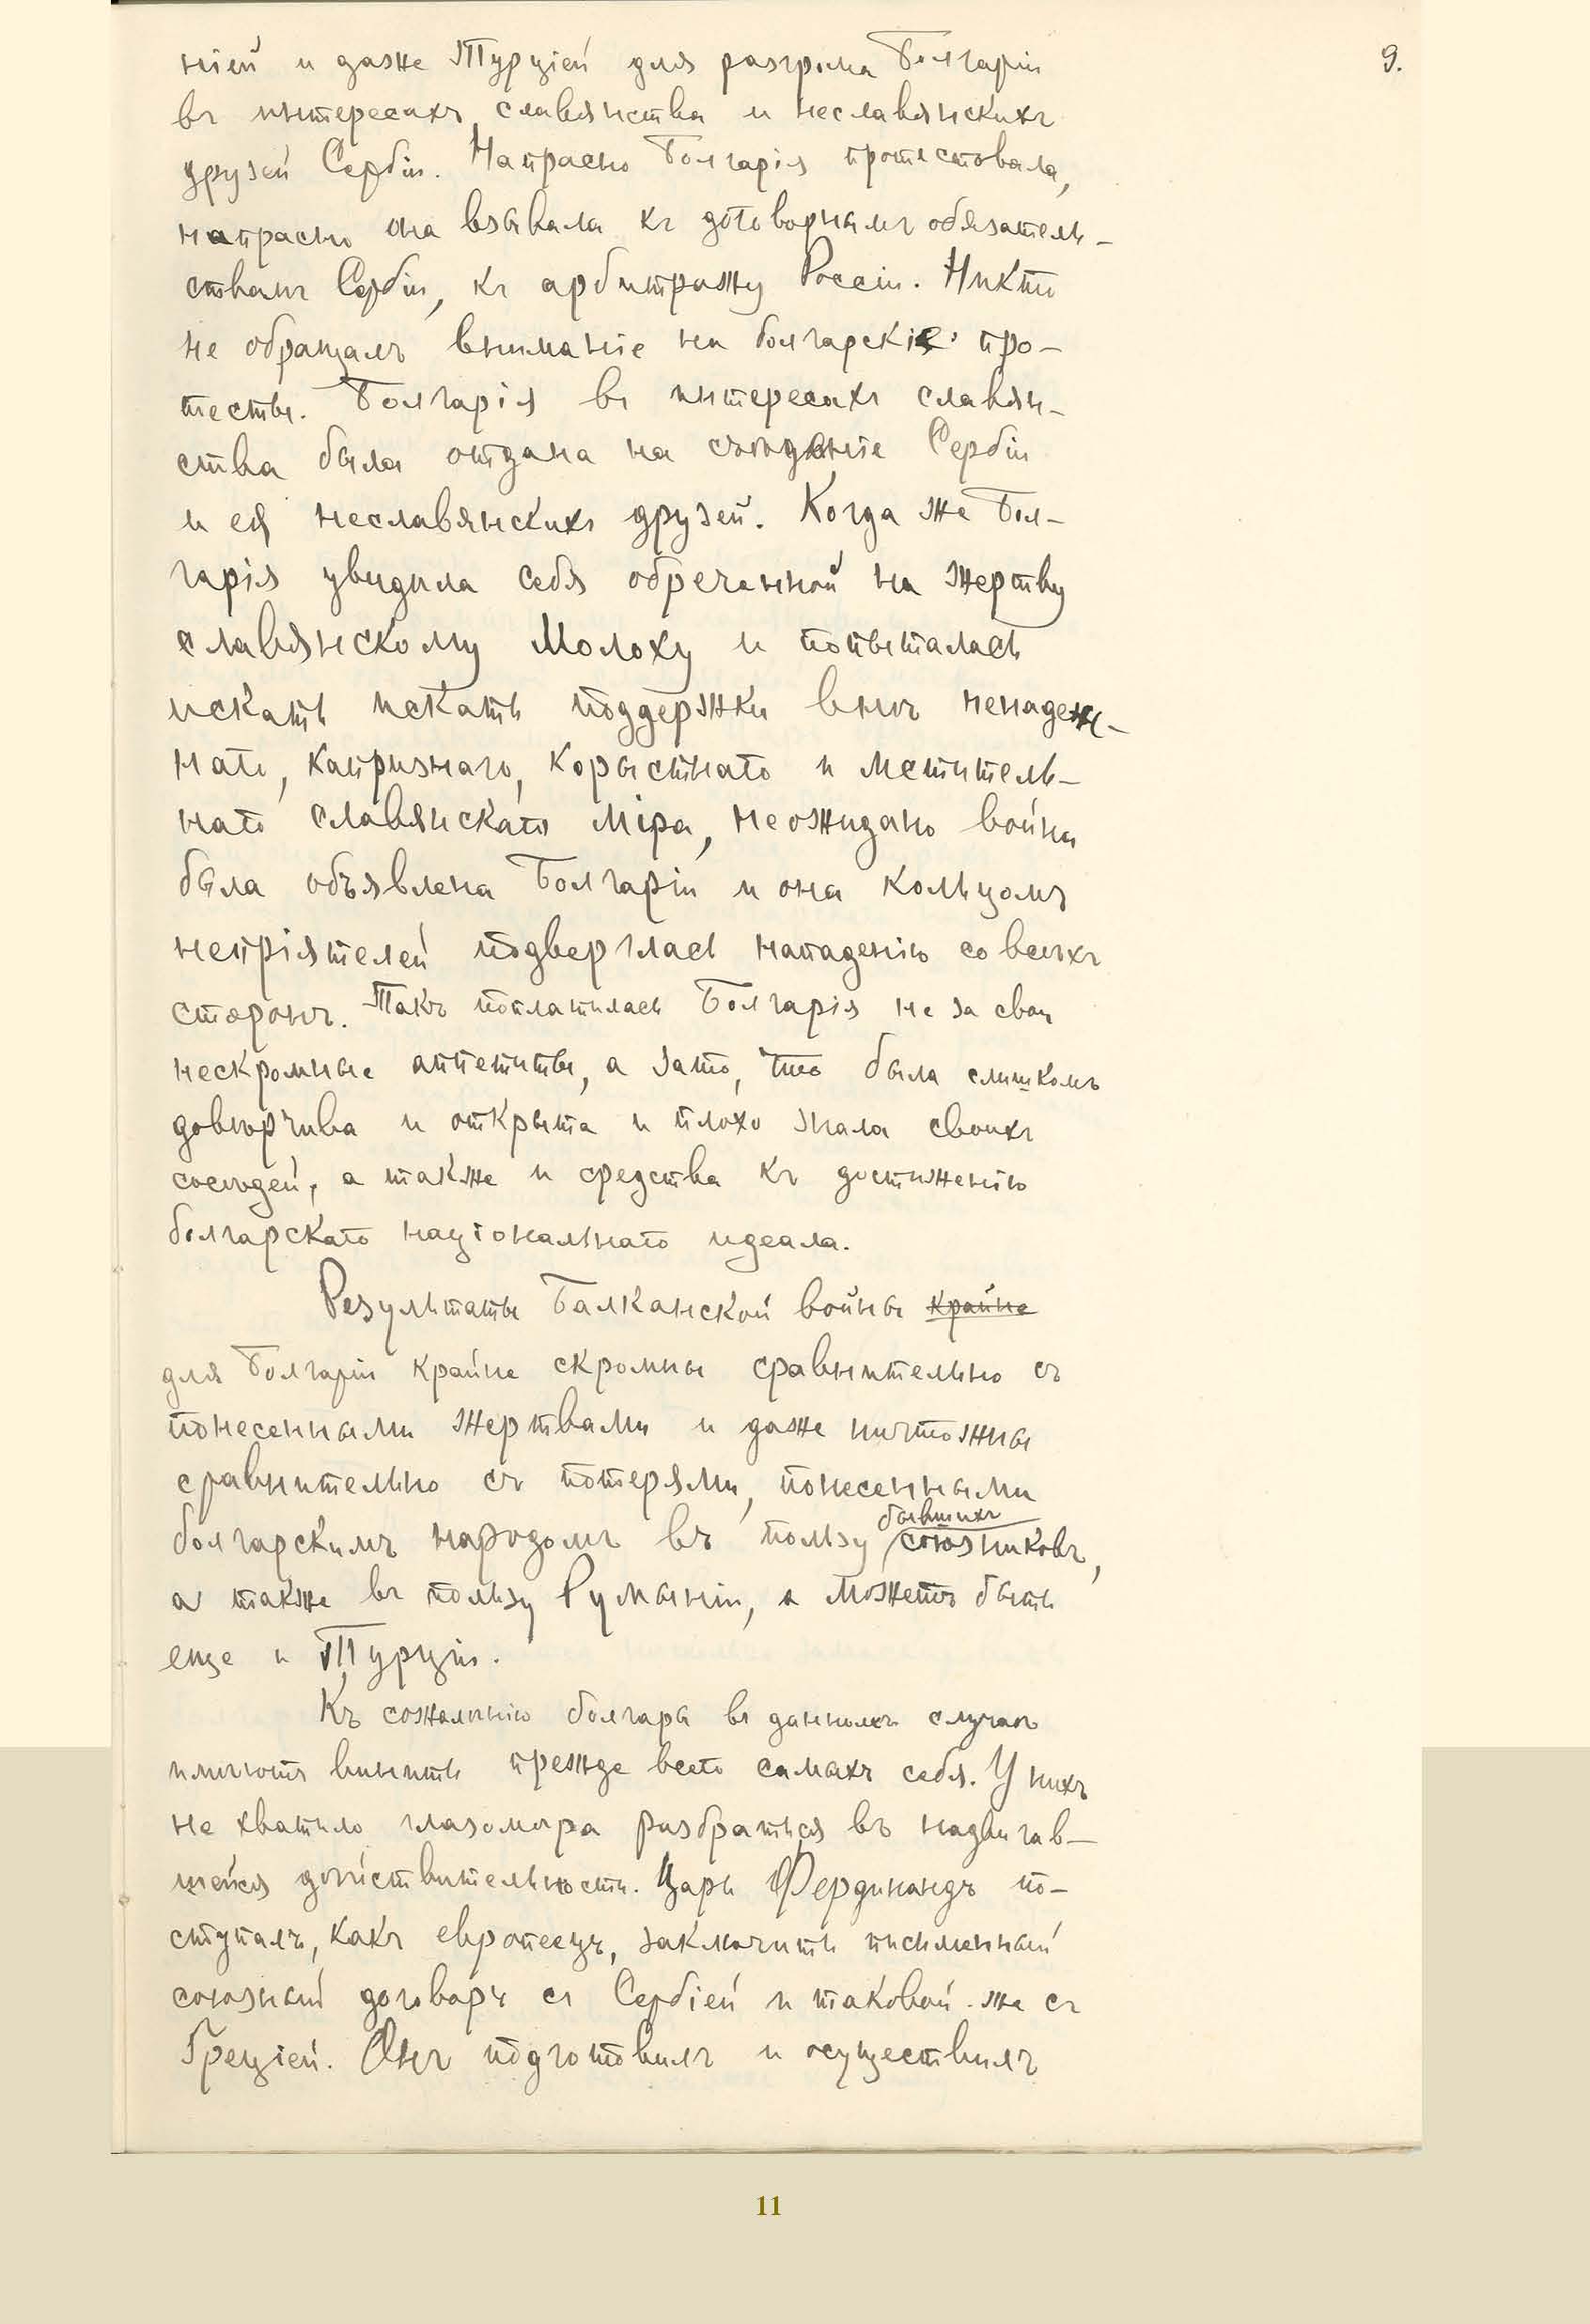 9.
ніей и даже Турціей для разгрома Болгаріи
въ интересахъ славянства и неславянскихъ
друзей Сербіи. Напрасно Болгарія протестовала,
напрасно она взывала къ договорнымъ обязатель-
ствамъ Сербіи, къ арбитражу Россіи. Никто
не обращалъ вниманіе на болгарскіе про-
тесты. Болгарія въ интересахъ славян-
ства была отдана на съѣденіе Сербіи
и ея неславянскихъ друзей. Когда же Бол-
гарія увидѣла себя обреченной на жертву
славянскому Молоху и попыталась
искать искать поддержки внѣ ненадеж-
наго, капризнаго, корыстнаго и мститель-
наго славянскаго міра, неожидано война
была объявлена Болгаріи и она кольцомъ
непріятелей подверглась нападенію со всѣхъ
сторонъ. Такъ поплатилась Болгарія не за свои
нескромные аппетиты, а зато, что была слишкомъ
довѣрчива и открыта и плохо знала своихъ
сосѣдей, а также и средства къ достиженію
болгарскаго національнаго идеала.
Результаты Балканской войны крайне
для Болгаріи крайне скромны сравнительно съ
понесенными жертвами и даже ничтожны
сравнительно съ потерями, понесенными
бывшихъ
болгарскимъ народомъ въ пользу союзниковъ,
а также въ пользу Румыніи, а можетъ быть
еще и Турціи.
Къ сожалѣнію болгары въ данномъ случаѣ
имѣютъ винить прежде всего самыхъ себя. У нихъ
не хватило глазомѣра разбраться въ надвигав-
шейся дѣйствительности. Царь Фердинандъ по-
ступалъ, какъ европеецъ, заключить письменный
союзный договоръ съ Сербіей и таковой же съ
Греціей. Онъ подготовилъ и осуществилъ
11